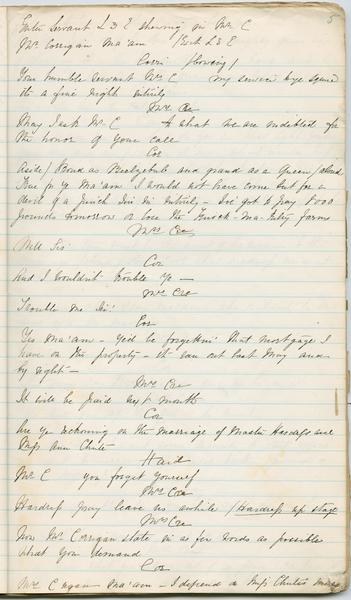 5
Enter Servant L 3 E showing in Mr C
Mr Corrigan Ma'am /Exit L 3 E
Corri (bowing)
Your humble servant Mrs C my service to ye Squire
its a fine night entirely
Mrs Cre
May I ask Mr C to what we are indebted for
the honor of your call
Cor
Aside/ Proud as Beelzebub and grand as a Queen /aloud
True for ye Ma'am I would not have come but for a
devil of a pinch I'm in entirely - I've got to pay 8000
pounds tomorrow or lose the Knock-Ma-                 farms
Mrs Cre
Well Sir
Cor
And I wouldn't trouble ye —
Mrs Cre
Trouble me Sir
Cor
Yes Ma'am - ye'd be forgettin' that mortgage I
have on this property - it ran out last May and
by right -
Mrs Cre
It will be paid next month
Cor
Are ye reckoning on the marriage of Master Hardress and
Miss Ann Chute
Hard
Mr C you forget yourself
Mrs Cre
Hardress pray leave us awhile /Hardress up stage
Mrs Cre
Now Mr Corrigan state in as few words as possible
what you demand
Cor
Mrs C                 ma'am - I depend on Miss Chute's